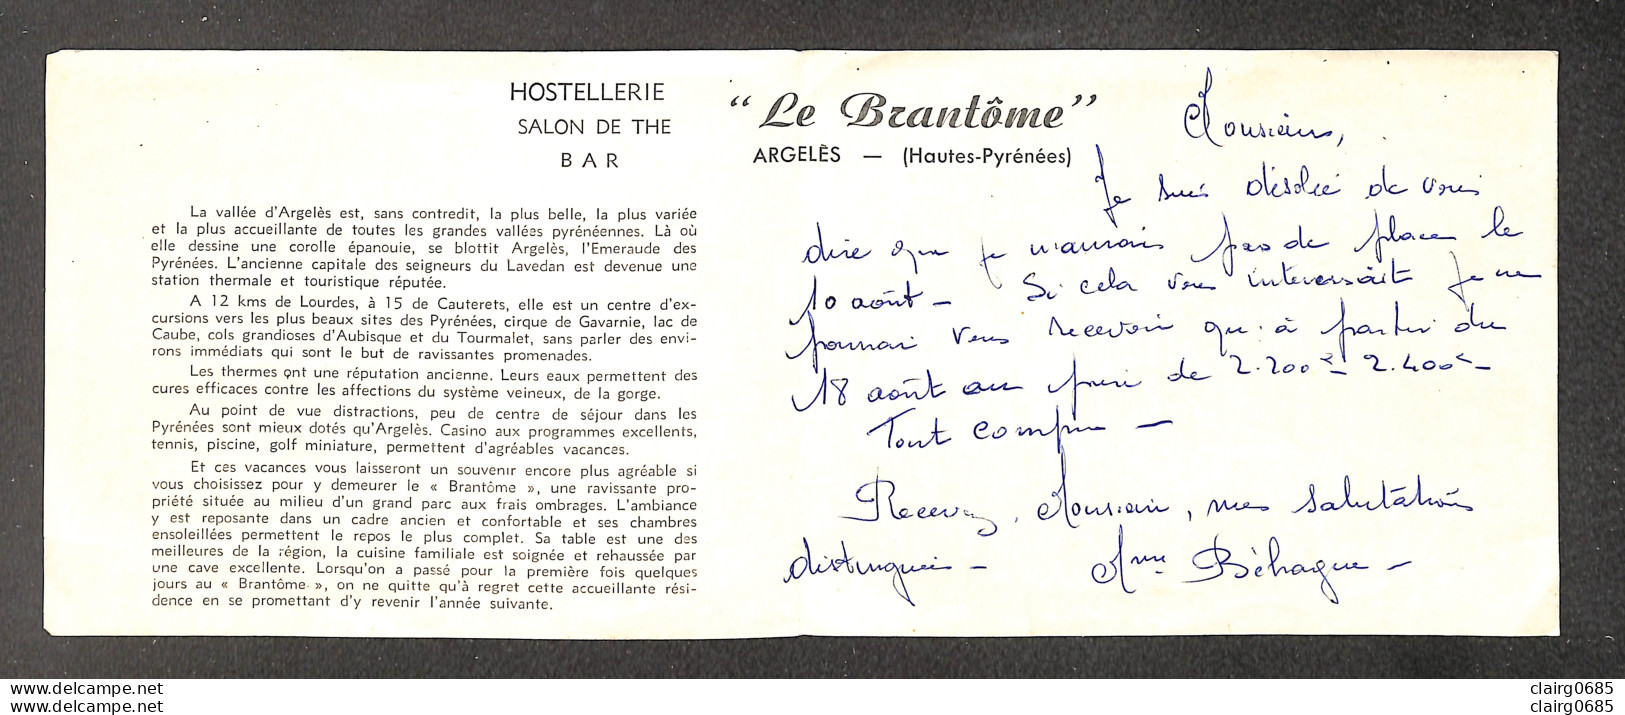 HOSTELLERIE
SALON DE THE
BAR
“Le Brantôme”
ARGELÈS — (Hautes-Pyrénées)
La vallée d'Argelès est, sans contredit, la plus belle, la plus variée
et la plus accueillante de toutes les grandes vallées pyrénéennes. Là où
elle dessine une corolle épanouie, se blottit Argelès, l'Emeraude des
Pyrénées. L'ancienne capitale des seigneurs du Lavedan est devenue une
station thermale et touristique réputée.
A 12 kms de Lourdes, à 15 de Cauterets, elle est un centre d'ex-
cursions vers les plus beaux sites des Pyrénées, cirque de Gavarnie, lac de
Caube, cols grandioses d'Aubisque et du Tourmalet, sans parler des envi-
rons immédiats qui sont le but de ravissantes promenades.
Les thermes ont une réputation ancienne. Leurs eaux permettent des
cures efficaces contre les affections du système veineux, de la gorge.
Au point de vue distractions, peu de centre de séjour dans les
Pyrénées sont mieux dotés qu'Argelès. Casino aux programmes excellents,
tennis, piscine, golf miniature, permettent d'agréables vacances.
Et ces vacances vous laisseront un souvenir encore plus agréable si
vous choisissez pour y demeurer le « Brantôme », une ravissante pro-
priété située au milieu d'un grand parc aux frais ombrages. L'ambiance
y est reposante dans un cadre ancien et confortable et ses chambres
ensoleillées permettent le repos le plus complet. Sa table est une des
meilleures de la région, la cuisine familiale est soignée et rehaussée par
une cave excellente. Lorsqu'on a passé pour la première fois quelques
jours au « Brantôme », on ne quitte qu'à regret cette accueillante rési-
dence en se promettant d'y revenir l'année suivante.
Monsieur,
Je suis désolée de vous
dire que je n'aurais pas de place le
10 août – Si cela vous interessait je ne
pourrai vous recevoir qu'à partir du
18 août au prix de 2.200 – 2.400 –
Tout compris –
Recevez, Monsieur, mes salutations
distinguées – Mme Béhague –
delcampe.net
clairg0685
delcampe.net
clairg0685